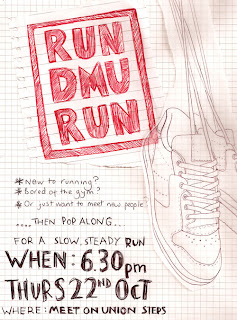 RUN
DMU
RUN
* New to running?
* Bored of the gym?
* Or just want to meet new people
....THEN POP ALONG...
FOR A SLOW, STEADY RUN
WHEN: 6.30pm
THURS 22ND OCT
WHERE: MEET ON UNION STEPS